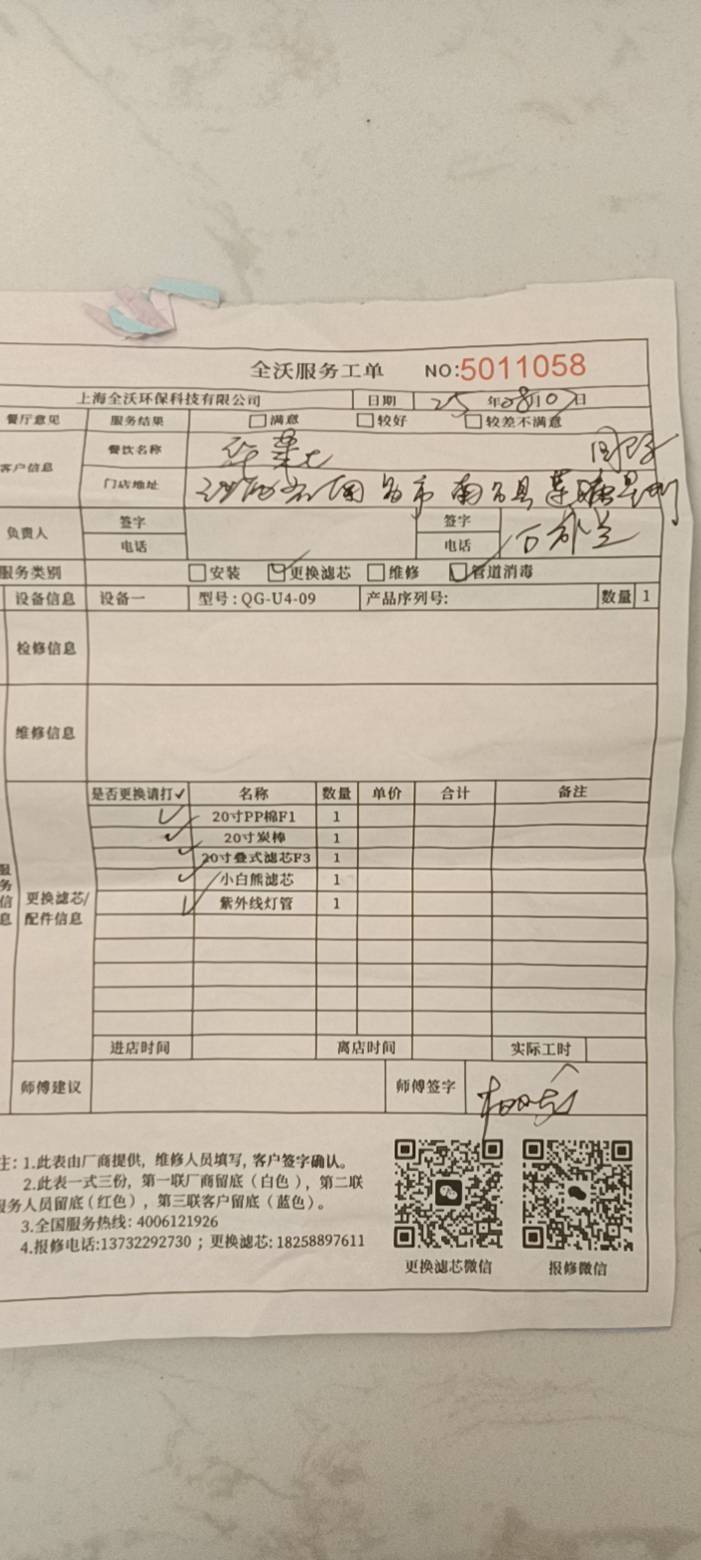 全沃服务工单 NO:5011058
上海全沃环保科技有限公司 日期 25 年 08 月 07 日
餐厅意见 服务结果 满意 较好 较差不满意
客户信息 餐饮名称 华莱士
门店地址 南昌市南昌县莲塘
负责人 签字 签字
电话 电话
服务类别 安装 更换滤芯 维修 管道消毒
设备信息 设备一 型号:QG-U4-09 产品序列号: 数量 1
检修信息
维修信息
服务信息
更换滤芯/配件信息
是否更换请打✓ 名称 数量 单价 合计 备注
✓ 20寸PP棉F1 1
✓ 20寸炭棒 1
✓ 20寸叠式滤芯F3 1
✓ 小白熊滤芯 1
✓ 紫外线灯管 1
进店时间 离店时间 实际工时
师傅建议 师傅签字
注: 1.此表由厂商提供, 维修人员填写, 客户签字确认。
2.此表一式三份, 第一联厂商留底(白色), 第二联
服务人员留底(红色), 第三联客户留底(蓝色)。
3.全国服务热线: 4006121926
4.报修电话:13732292730 ; 更换滤芯: 18258897611
更换滤芯微信 报修微信